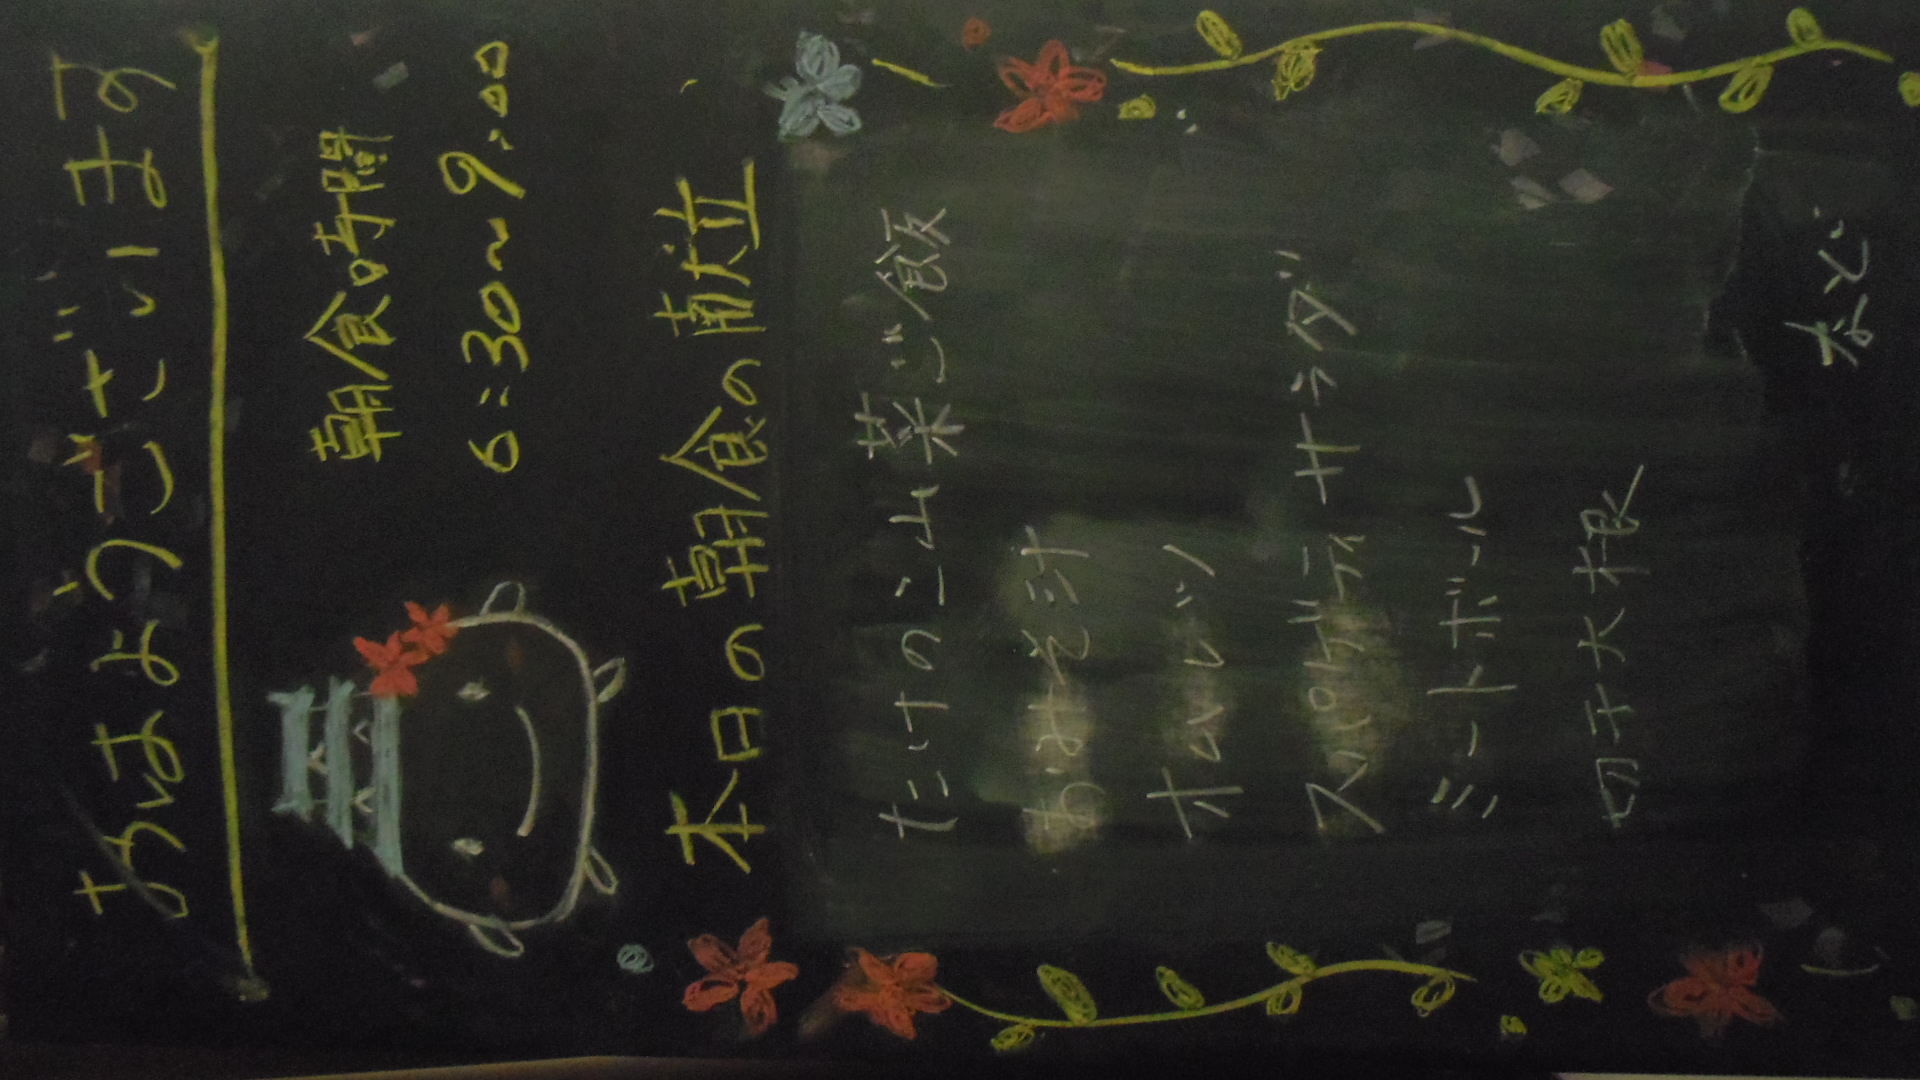 おはようございます
朝食時間
6:30~9:00
本日の朝食の献立
たけのこ山菜ご飯
おみそ汁
オムレツ
スパゲッティサラダ
ミートボール
切干大根
など